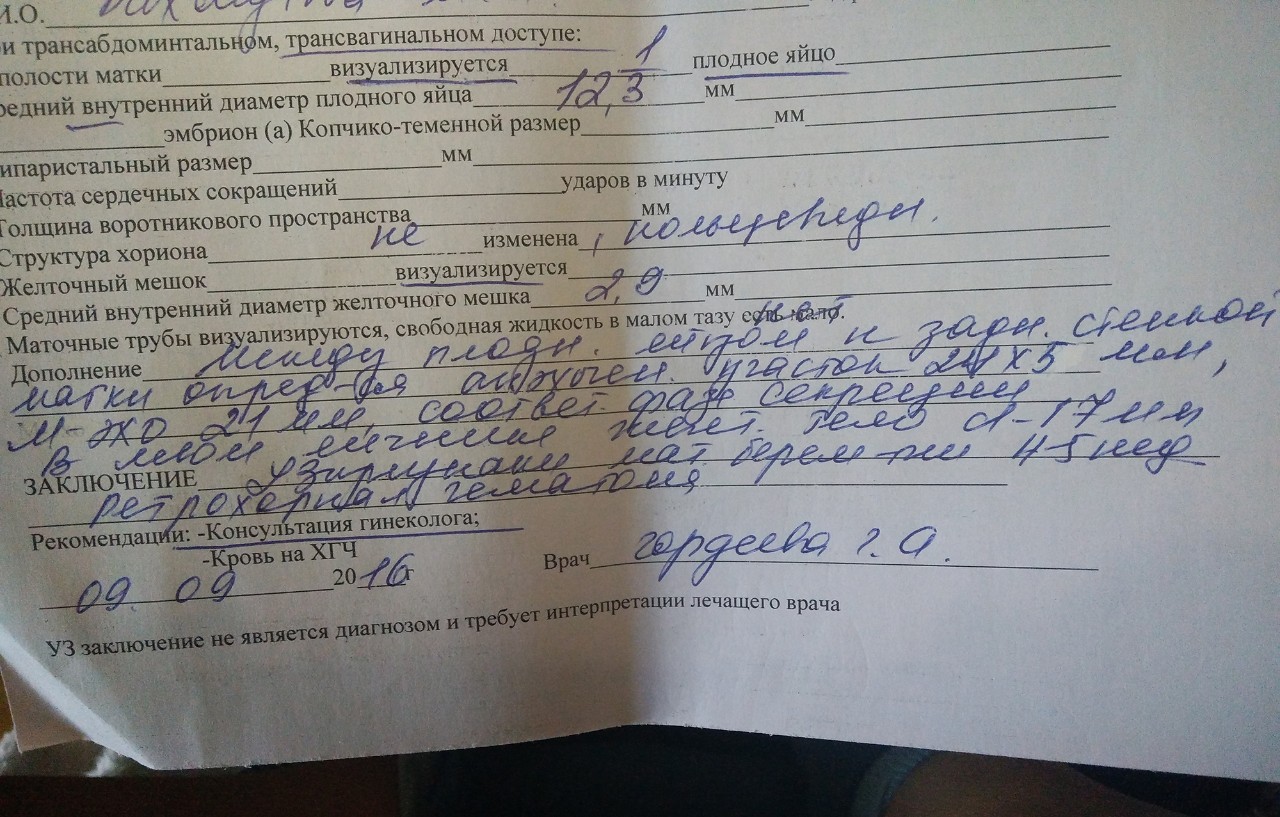 И.О.
и трансабдоминтальном, трансвагинальном доступе:
полости матки визуализируется 1 плодное яйцо
редний внутренний диаметр плодного яйца 12,3 мм
эмбрион (а) Копчико-теменной размер мм
ипаристальный размер мм
Частота сердечных сокращений ударов в минуту
Толщина воротникового пространства мм
Структура хориона не изменена, кольцевидн.
Желточный мешок визуализируется
Средний внутренний диаметр желточного мешка 2,9 мм
Маточные трубы визуализируются, свободная жидкость в малом тазу есть мало.
Дополнение между плодн. яйцом и задн. стенкой
матки опред-ся анэхоген. участок 24х5 мм,
М-эхо 21 мм, соответ. фазе секреции
В левом яичнике желт. тело d-17 мм
ЗАКЛЮЧЕНИЕ УЗ признаки мат. берем-ти 4-5 нед
Ретрохориал. гематома
Рекомендации: -Консультация гинеколога;
-Кровь на ХГЧ
09. 09 2016г Врач Гордеева Г. А.
УЗ заключение не является диагнозом и требует интерпретации лечащего врача